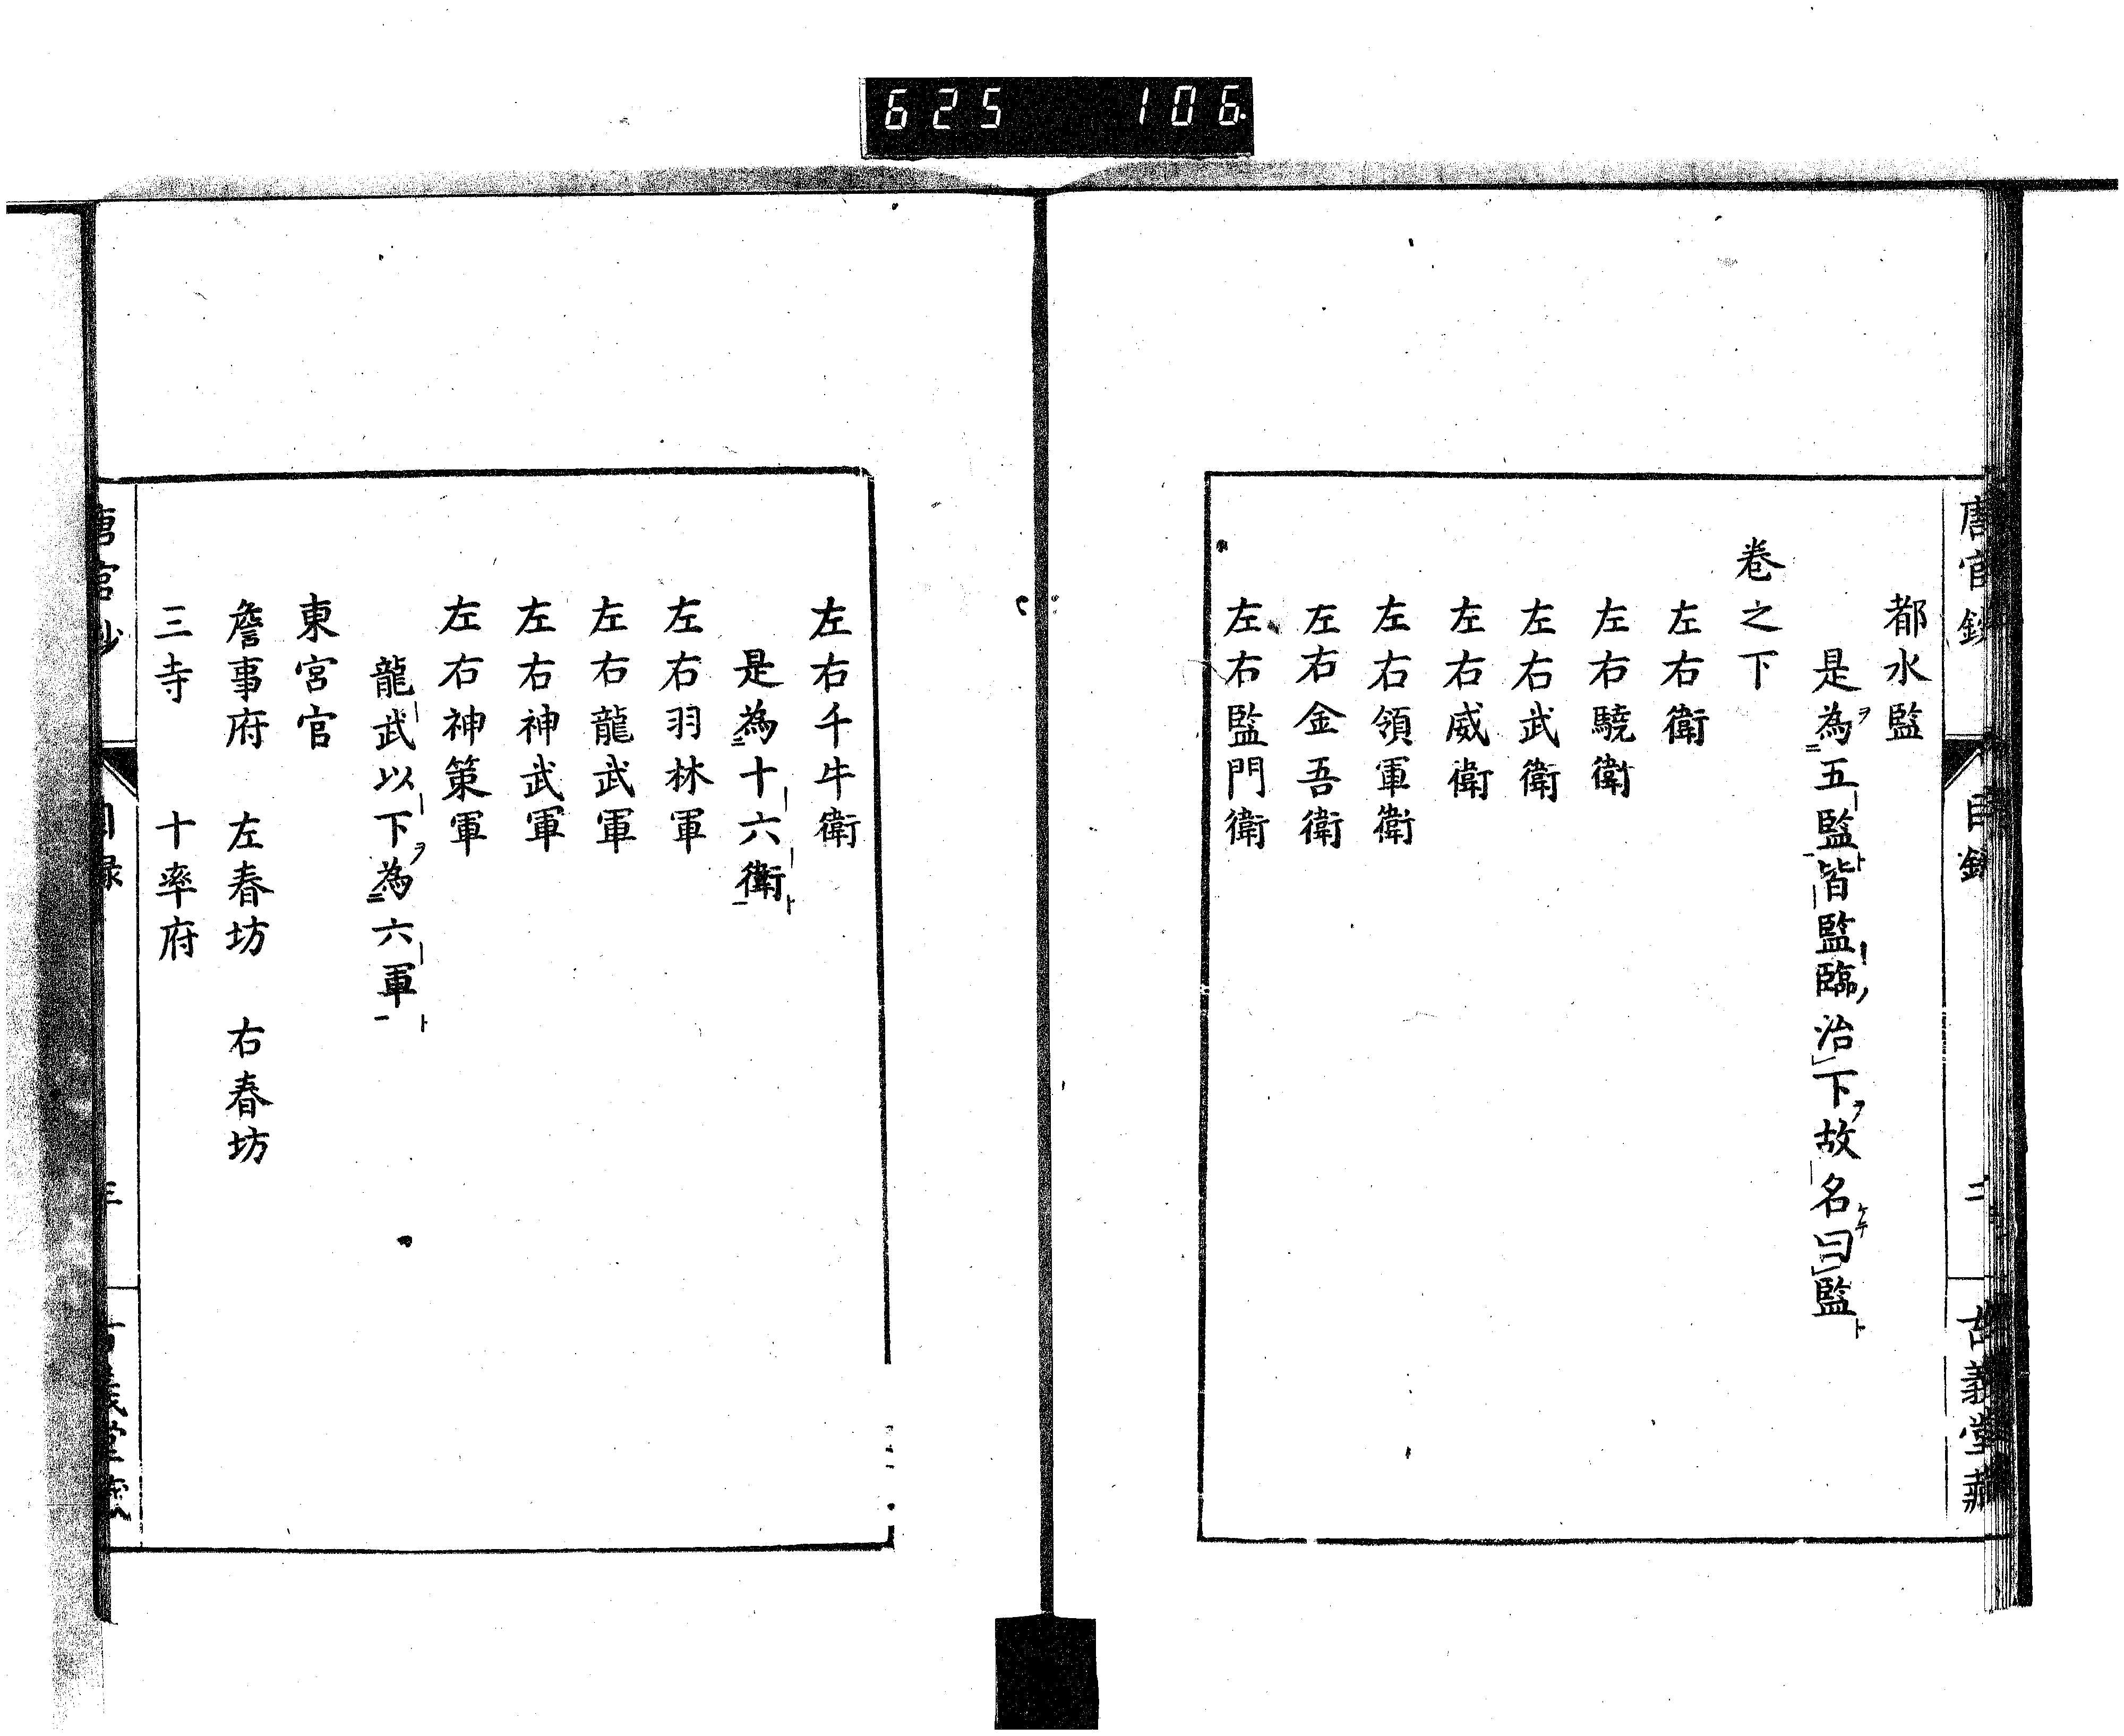 625 106
都水監
是為五監皆監臨治下故名曰監
卷之下
左右衛
左右驍衛
左右武衛
左右威衛
左右領軍衛
左右金吾衛
左右監門衛
左右千牛衛
是為十六衛
左右羽林軍
左右龍武軍
左右神武軍
左右神策軍
龍武以下為六軍
東宮官
詹事府 左春坊 右春坊
三寺 十率府